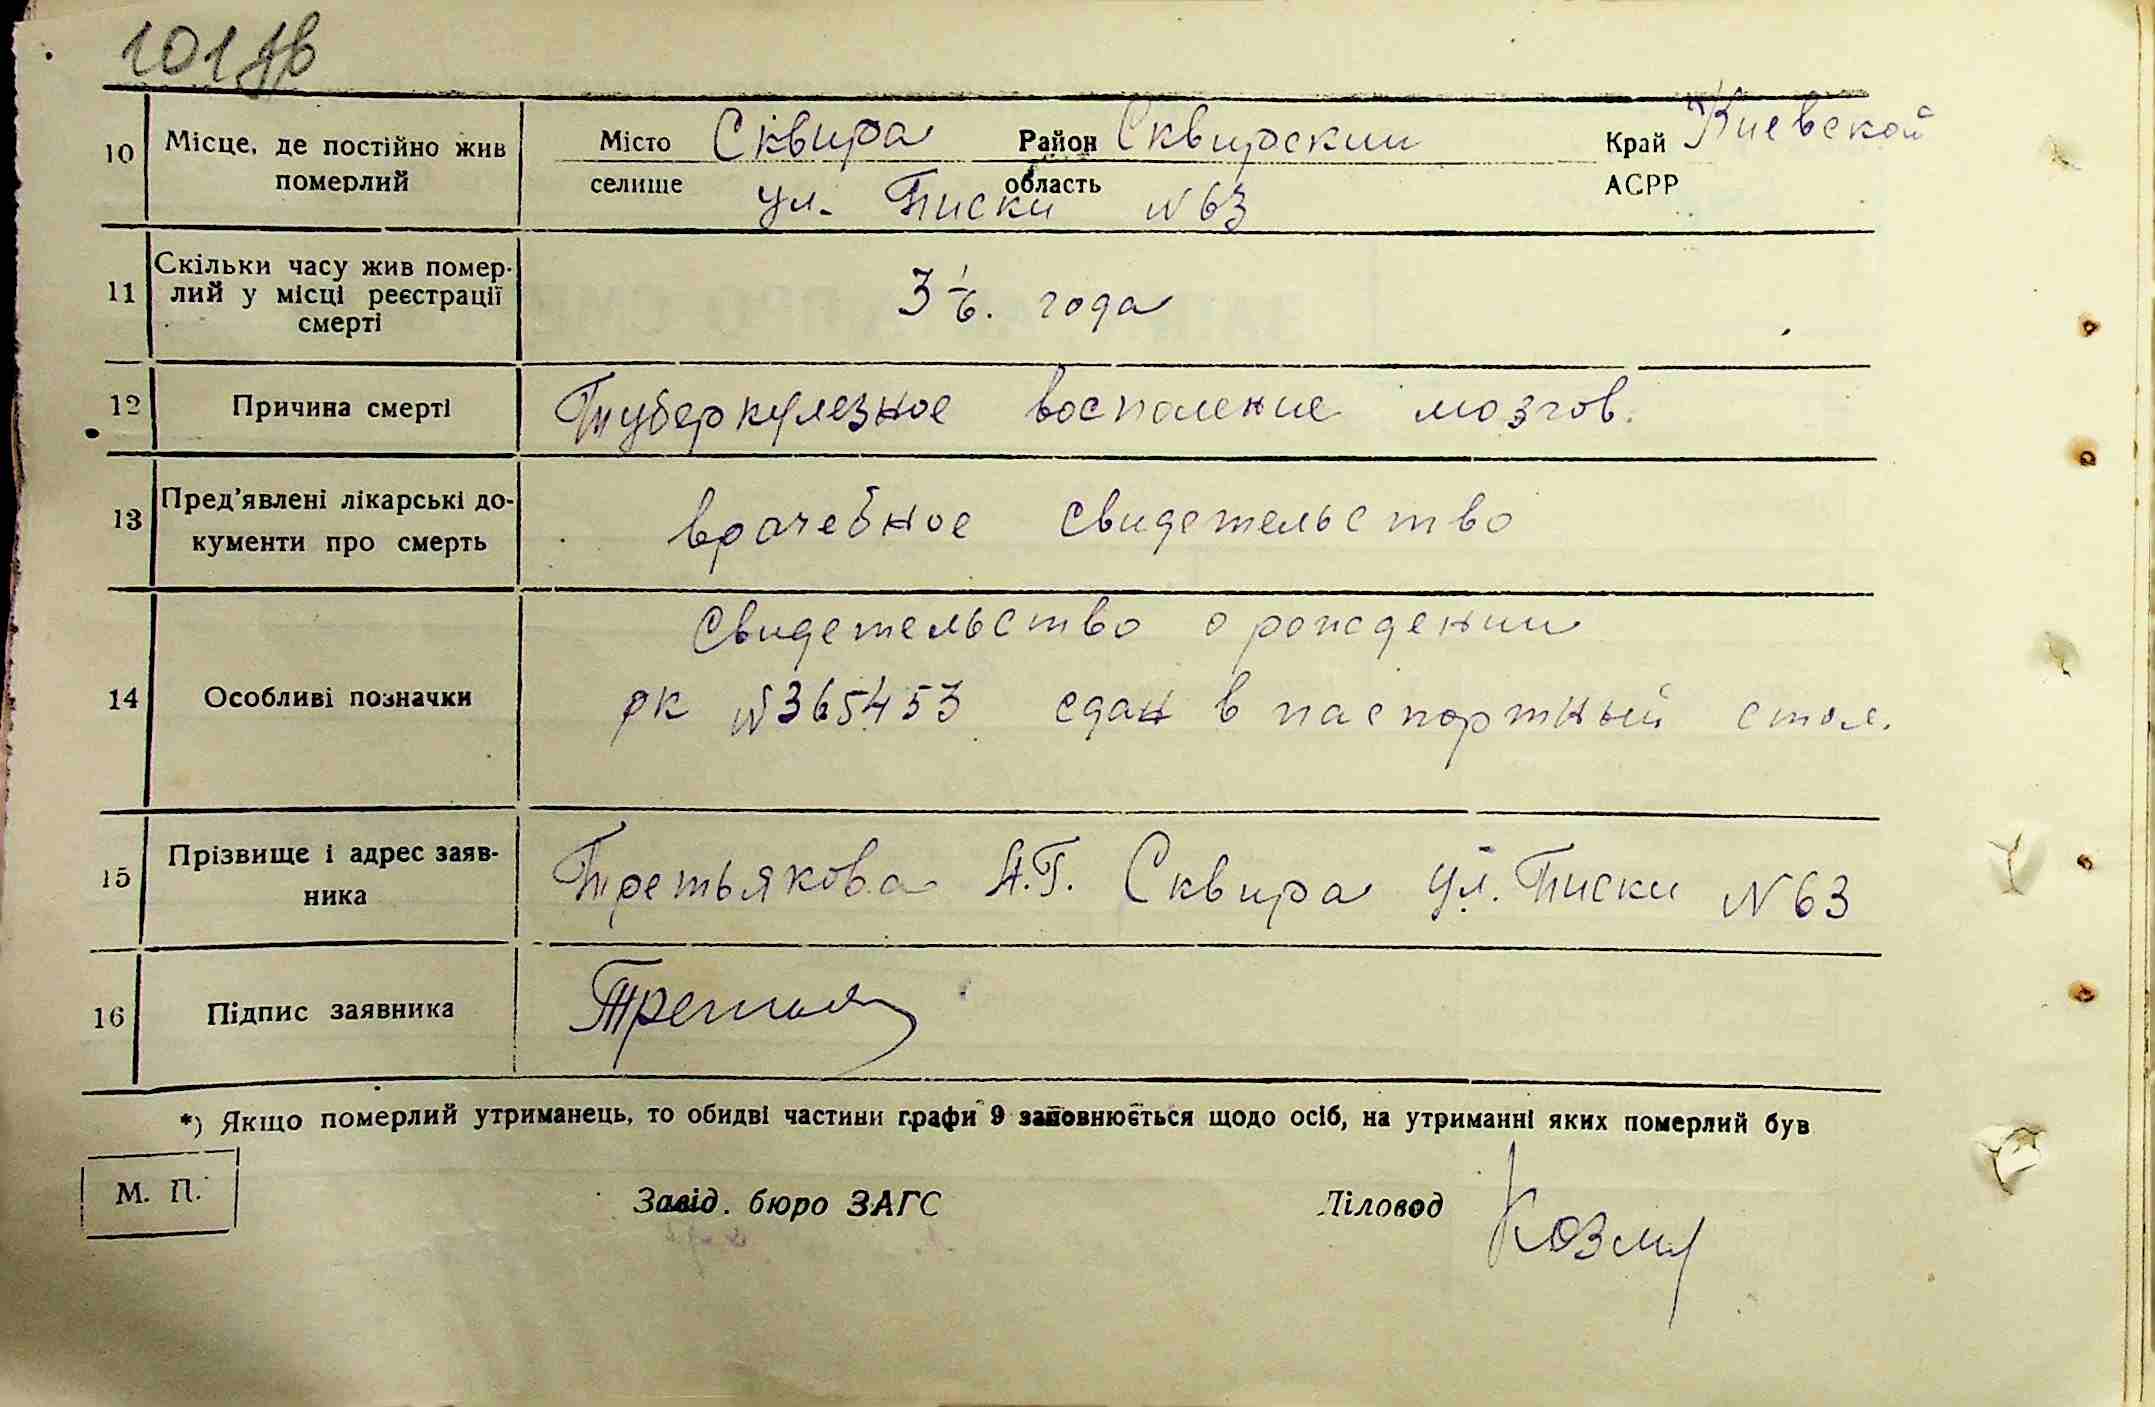 101
10 Місце, де постійно жив Місто Сквира Район Сквирский Край Киевской
померлий селище область АСРР
ул. Писки №63
11 Скільки часу жив помер-
лий у місці реєстрації 3 1/6. года
смерті
12 Причина смерті Туберкулезное воспаление мозгов.
13 Пред'явлені лікарські до-
кументи про смерть врачебное свидетельство
Свидетельство о рождении
14 Особливі позначки рк №365453 сдан в паспортный стол.
15 Прізвище і адрес заяв-
ника Третьякова А.Г. Сквира ул. Писки №63
16 Підпис заявника
*) Якщо померлий утриманець, то обидві частини графи 9 заповнюється щодо осіб, на утриманні яких померлий був
М. П. Завід. бюро ЗАГС Діловод